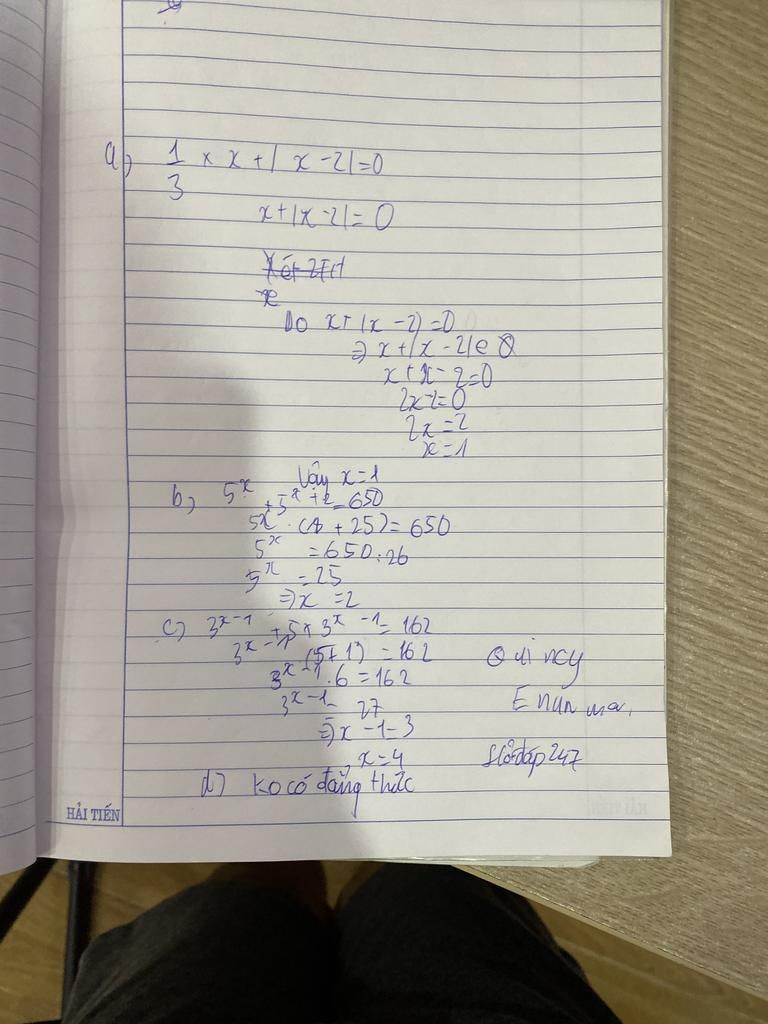 a) 1/3 × x + |x - 2| = 0
x + |x - 2| = 0
Xét
x
Do x + |x - 2| = 0
⇒ x + |x - 2| e 0
x + x - 2 = 0
2x - 2 = 0
2x = 2
x = 1
Vậy x = 1
b) 5^x + 5^x + 2 = 650
5^x . (1 + 25) = 650
5^x = 650 : 26
5^x = 25
⇒ x = 2
c) 3^x-1 + 5 × 3^x - 1 = 162
3^x - 1 (5 + 1) = 162
3^x - 1 . 6 = 162
3^x - 1 = 27
⇒ x - 1 = 3
x = 4
d) Ko có đẳng thức
Quincy
Enunma.
Hỏi đáp 247
HẢI TIẾN
HẢI TIẾN